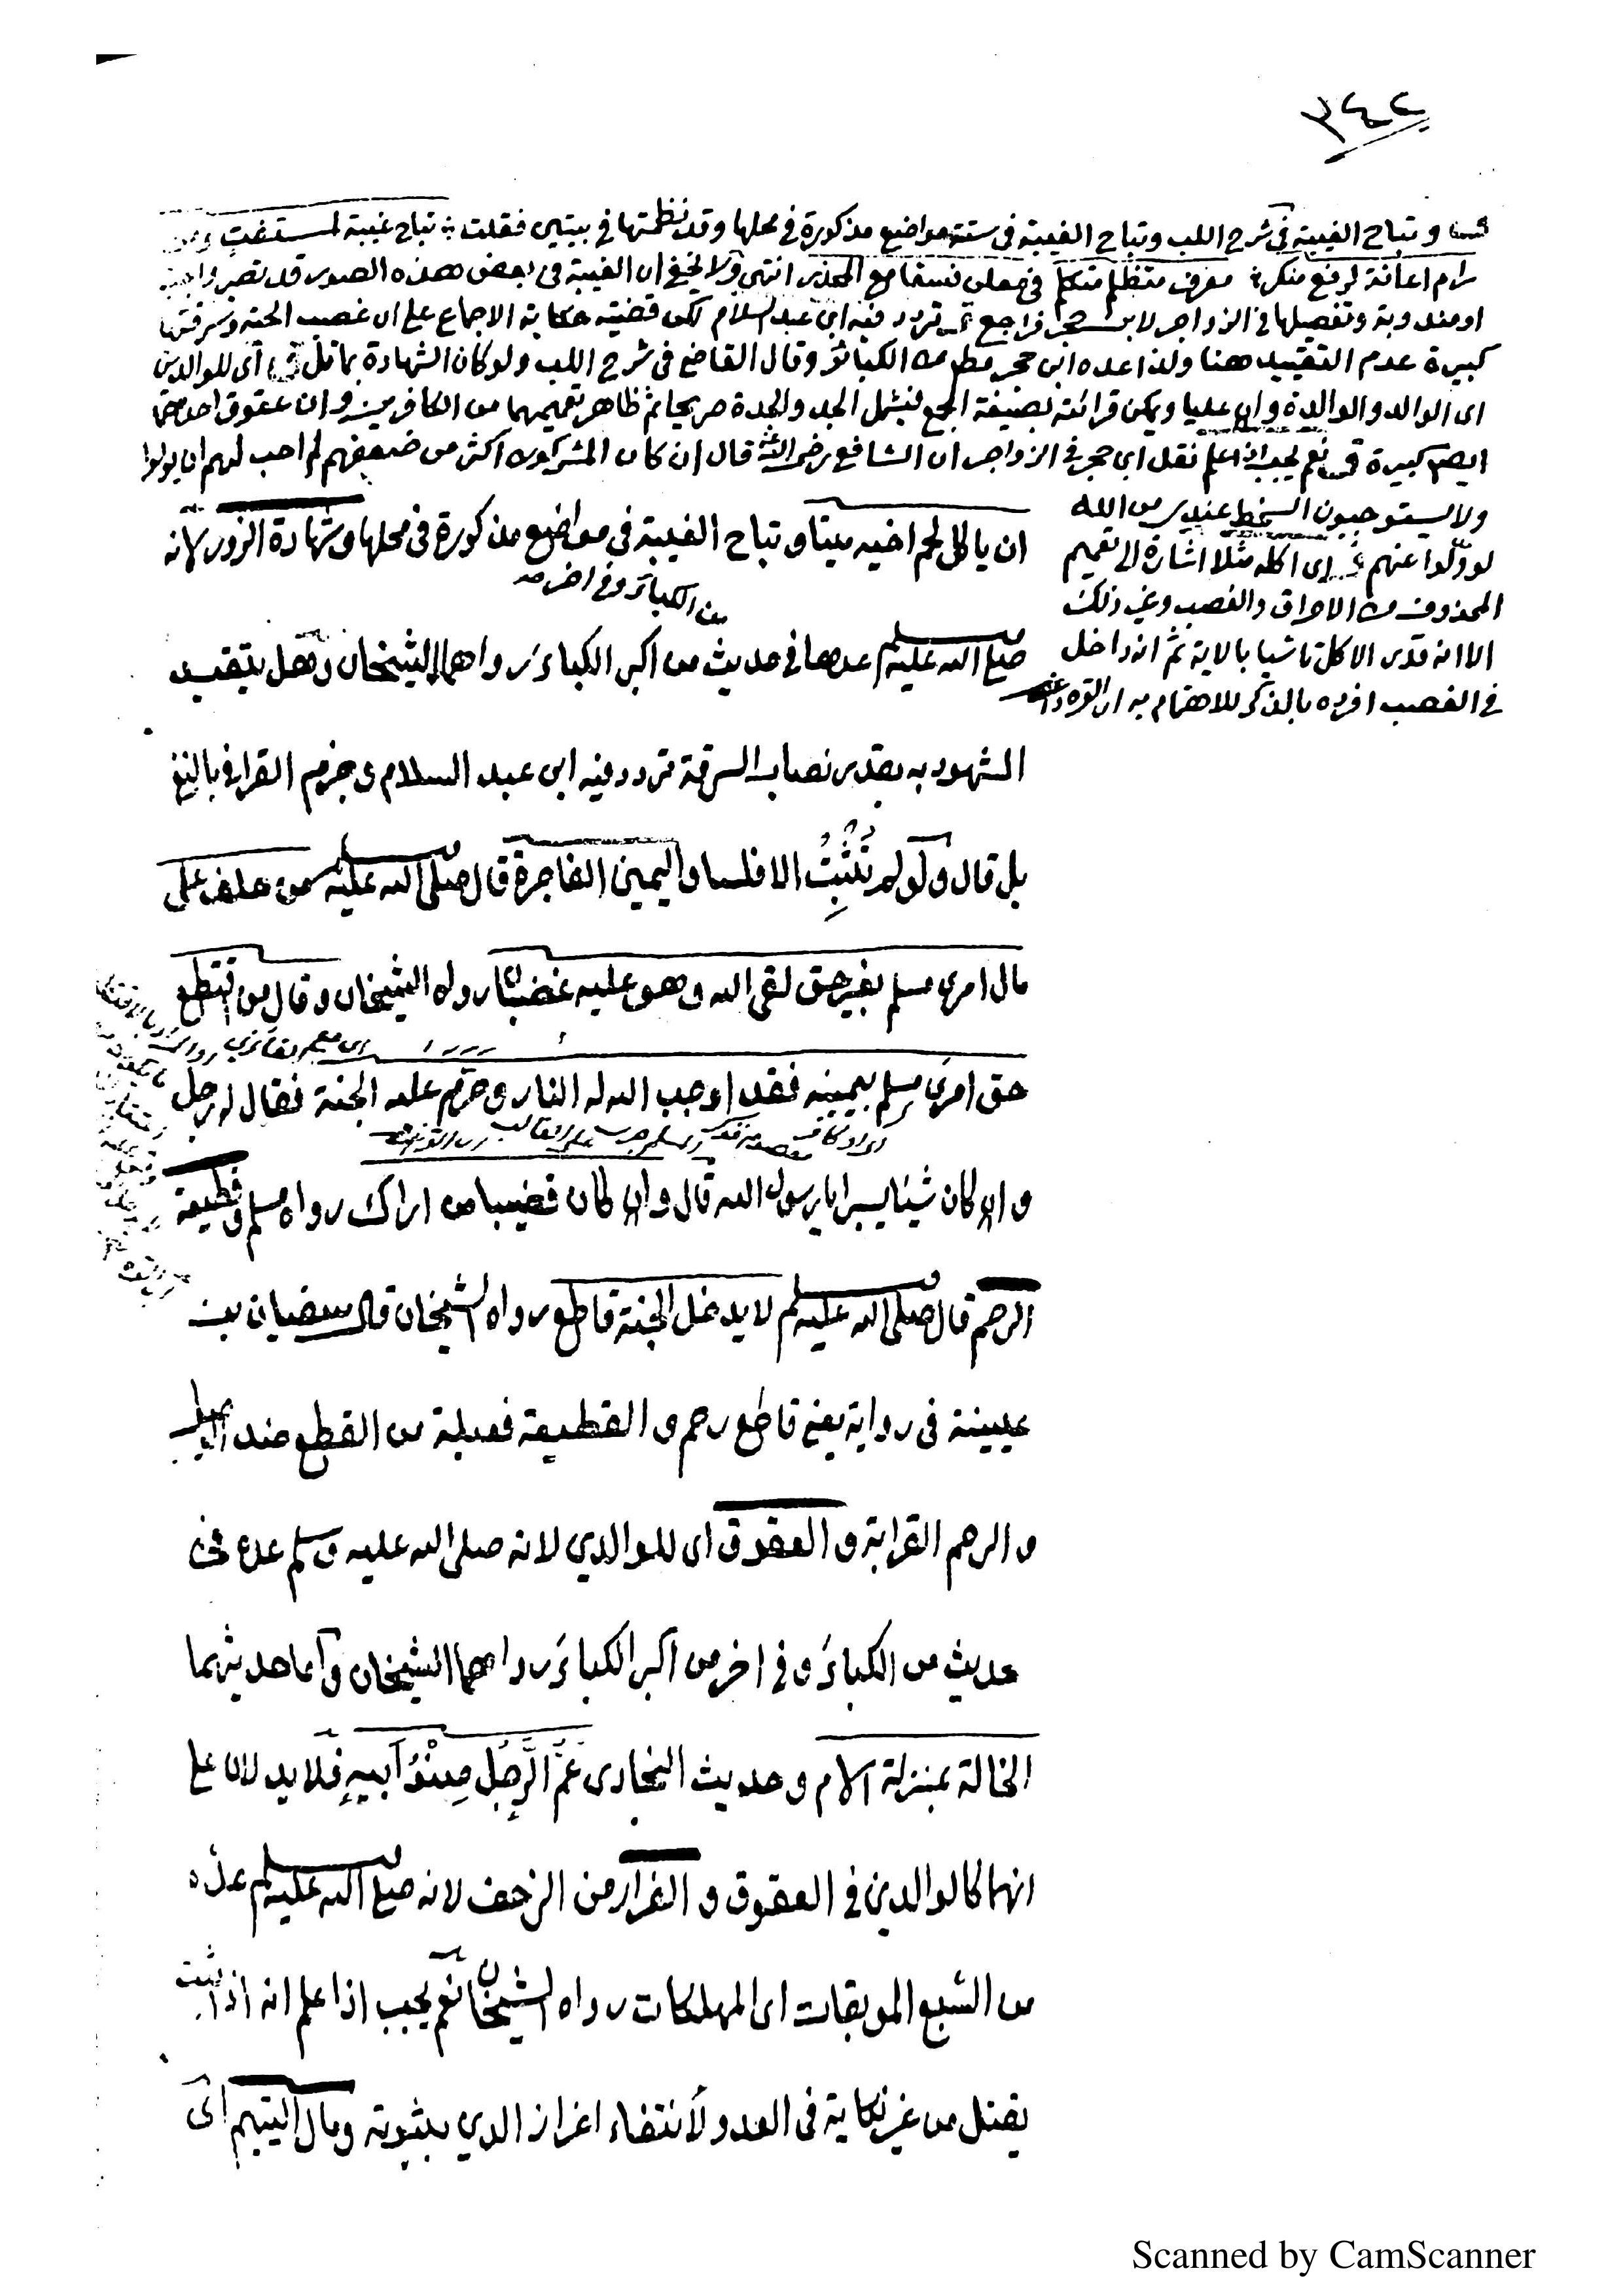 ٣٤٢
وتباح الغيبة في شرح اللب وتباح الغيبة في ستة مواضع مذكورة في محلها وقد نظمتها في بيتين فقلت تباح غيبة لمستفت ومن
رام اعانة لرفع منكر معرف متظلم متكلم في معلن فسقا مع المحذر انتهى ولا يخفى ان الغيبة في بعض هذه الصور قد تصير واجبة
او مندوبة وتفصيلها في الزواجر لابن حجر فراجع تردد فيه ابن عبد السلام لكن قضية حكاية الاجماع على ان غصب الحبة وسرقتها
كبيرة عدم التقييد هنا ولذا عده ابن حجر من الكبائر وقال القاضي في شرح اللب ولو كان الشهادة بما قل اى للوالدين
اى الوالد والوالدة وان عليا ويمكن قرائته بصيغة الجمع ليشمل الجد والجدة صريحا ثم ظاهر تعميمهما من الكافرين وان عقوق احدهما
ايضا كبيرة نعم يجب اذا علم نقل ابن حجر في الزواجر ان الشافعي رضى الله عنه قال ان كان المشركون اكثر من ضعفهم لم احب لهم ان يولوا
ولا يستوجبون السخط عندى من الله
لو ولوا عنهم اى اكله مثلا اشارة الى تعميم
المحذوف من الاحراق والغصب وغير ذلك
الا انه قدر الاكل تاشيا بالاية ثم انه داخل
في الغصب افرده بالذكر للاهتمام به
ان ياكل لحم اخيه ميتا وتباح الغيبة في مواضع مذكورة في محلها وشهادة الزور لانه
من الكبائر وفى اخر
صلى الله عليه وسلم عدها في حديث من اكبر الكبائر رواهما الشيخان وهل يتقيد
المشهود به بقدر نصاب السرقة تردد فيه ابن عبد السلام وجزم القرافي بالنفي
بل قال ولو لم تثبت الا فلسا واليمين الفاجرة قال صلى الله عليه وسلم من حلف على
مال امرئ مسلم بغير حق لقى الله وهو عليه غضبان رواه الشيخان وقال من اقتطع
حق امرئ مسلم بيمينه فقد اوجب الله له النار وحرّم عليه الجنة فقال له رجل
وان كان شيئا يسيرا يا رسول الله قال وان كان قضيبا من اراك رواه مسلم وقطيعة
الرحم قال صلى الله عليه وسلم لا يدخل الجنة قاطع رواه الشيخان قال سفيان بن
عيينة في رواية يعني قاطع رحم والقطيعة فعيلة من القطع ضد
والرحم القرابة والعقوق اى للوالدين لانه صلى الله عليه وسلم عده في
حديث من الكبائر وفى اخر من اكبر الكبائر رواهما الشيخان واما حديثهما
الخالة بمنزلة الام وحديث البخارى عَمُّ الرَّجُلِ صِنْوُ اَبيهِ فلا يدلان على
انهما كالوالدين في العقوق والفرار من الزحف لانه صلى الله عليه وسلم عدّه
من السّبع الموبقات اى المهلكات رواه الشيخان نعم يجب اذا علم انه اذا ثبت
يقتل من غير نكاية في العدو لانتفاء اعزاز الدين بثبوته ومال اليتيم اى
Scanned by CamScanner